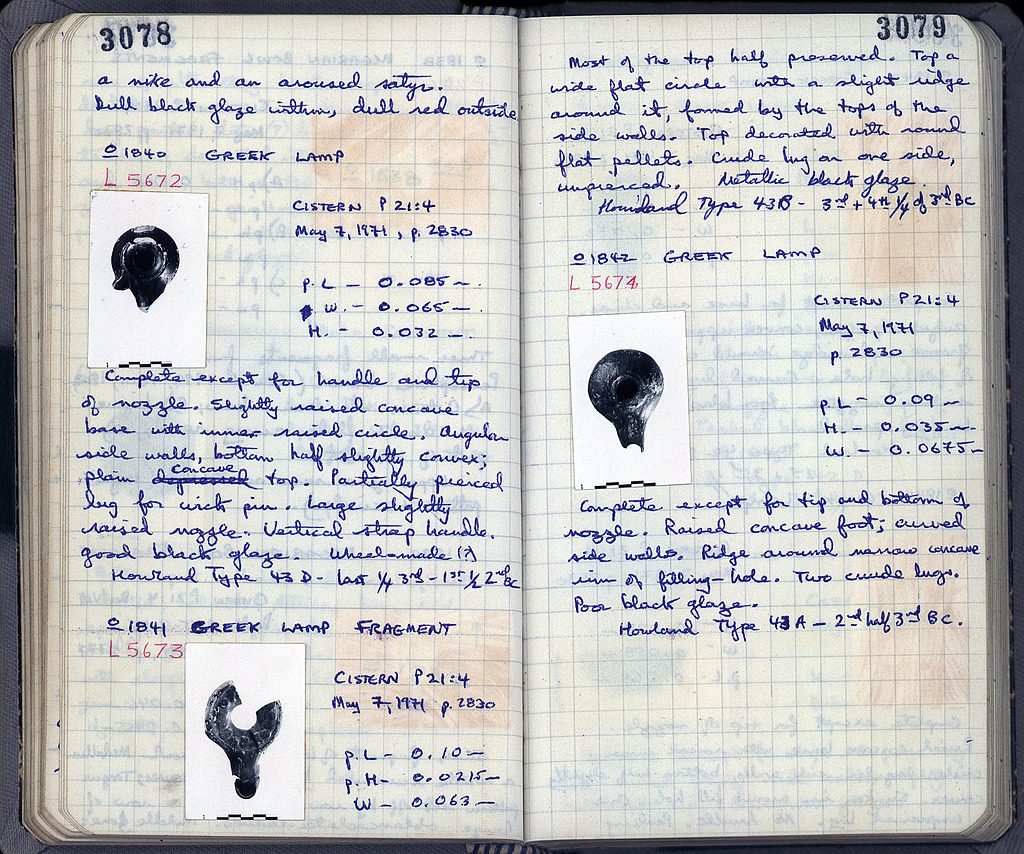 3078
a nike and an aroused satyr.
Dull black glaze within, dull red outside
O 1840 GREEK LAMP
L 5672
CISTERN P 21:4
May 7, 1971, p. 2830
p. L — 0.085 m.
W. — 0.065 m.
H. — 0.032 m.
Complete except for handle and tip
of nozzle. Slightly raised concave
base with inner raised circle. Angular
side walls, bottom half slightly convex;
concave
plain depressed top. Partially pierced
lug for wick pin. Large slightly
raised nozzle. Vertical strap handle.
Good black glaze. Wheel-made (?)
Howland Type 43 D - last 1/4 3rd - 1st 1/2 2nd BC
O 1841 GREEK LAMP FRAGMENT
L 5673
CISTERN P 21:4
May 7, 1971 p. 2830
p. L — 0.10 m
p. H — 0.0215 m
W — 0.063 m
3079
Most of the top half preserved. Top a
wide flat circle with a slight ridge
around it, formed by the tops of the
side walls. Top decorated with round
flat pellets. Crude lug on one side,
unpierced. Metallic black glaze.
Howland Type 43B - 3rd + 4th 1/4 of 3rd BC
O 1842 GREEK LAMP
L 5674
CISTERN P 21:4
May 7, 1971
p. 2830
p. L — 0.09 m
H. — 0.035 m.
W. — 0.0675 m
Complete except for tip and bottom of
nozzle. Raised concave foot; curved
side walls. Ridge around narrow concave
rim of filling-hole. Two crude lugs.
Poor black glaze.
Howland Type 43 A — 2nd half 3rd BC.